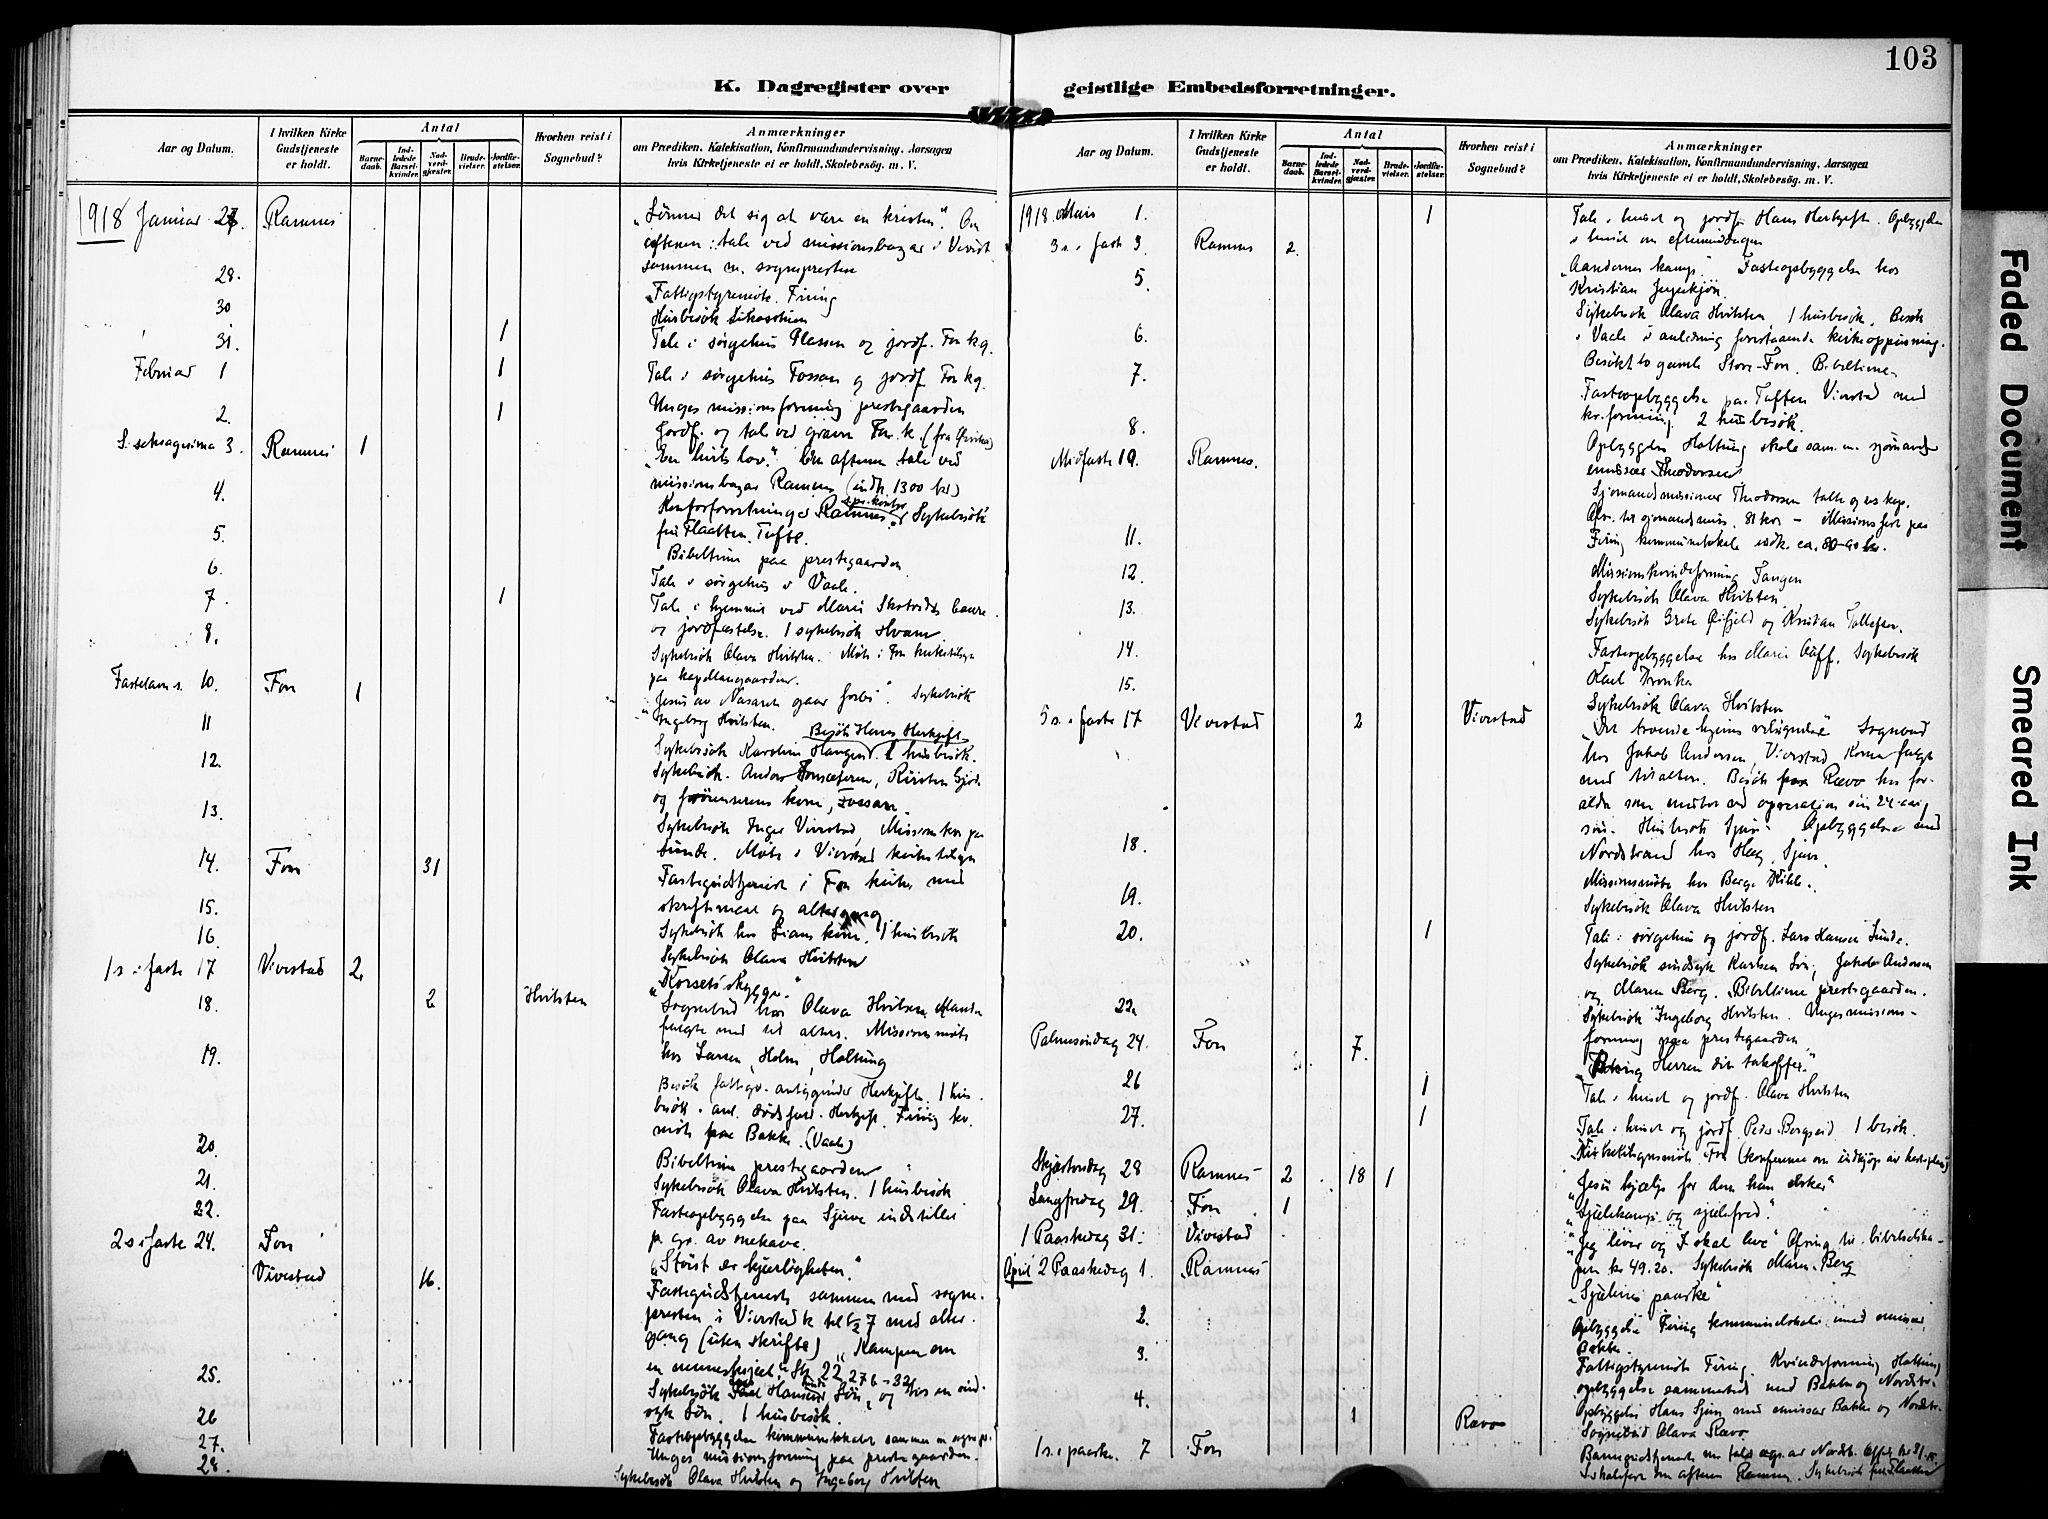 103
K. Dagregister over geistlige Embedsforretninger.
Aar og Datum.
I hvilken Kirke Gudstjeneste er holdt.
Antal
Barne-daab.
Ind-ledede Barsel-kvinder.
Nad-verd-gjæster.
Brude-vielser.
Jordfæ-stelser.
Hvorhen reist i Sognebud?
Anmærkninger
om Prædiken, Katekisation, Konfirmandundervisning, Aarsagen
hvis Kirketjeneste ei er holdt, Skolebesøg. m. V.
1918 Januar 27. Ramnes "Lønner det sig at være en kristen". Om
aftenen: tale ved missionsbazar i Vivest.
sammen m. sognepresten
28. Fattigstyremøte. Firing
30 Husbesøk
31. 1 Tale i sørgehus Plassen og jordf. Fon kg.
Februar 1 1 Tale i sørgehus Fossan og jordf Fon kg.
2. 1 Unges missionsforening prestegaarden
Jordf. og tale ved graven Fon k.
S. sexagesima 3. Ramnes 1 "En livets lov." Om aftenen tale ved
missionsbazar Ramnes (indk. 1300 kr)
4. Kontorforretninger Ramnes Sykebesøk
fru Flaatten, Tufte.
5. Bibeltime paa prestegaarden
6. Tale i sørgehus i Vaale.
7. 1 Tale i hjemmet ved Maris baare
og jordfæstelse. 1 sykebesøk Hvam
8. Sykebesøk Olava Hvitsten. Møte i Fon kirketilsyn
paa kapellangaarden.
Fastelavns. 10. Fon 1 "Jesus av Nasaret gaar forbi". Sykebesøk
Ingeborg Hvitsten. Besøk Hans Herkjeft
11 Sykebesøk Karoline Haugen. 1 husbesøk.
12. Sykebesøk. Anders, Kirsten
og kone, Fossan
13. Sykebesøk Inger Vivestad, Missions
Sunde. Møte i Vivestad kirketilsyn
14. Fon 31 Fastegudstjeneste i Fon kirke med
skriftemaal og altergang
15. Sykebesøk hos kone. 1 husbesøk
16. Sykebesøk Olava Hvitsten
1 s. i faste 17 Vivestad 2 "Korsets skygge."
18. 2 Hvitsten Sognebud hos Olava Hvitsten,
fulgte med til alters. Missionsmøte
hos Larsen, Holm, Haltung
19. Besøk fattige Herkjeft. 1 hus-
besøk i anl. dødsfald. Herkjeft. Firing
møte paa Bakke. (Vaale)
20. Bibeltime prestegaarden
21. Sykebesøk Olava Hvitsten. 1 husbesøk
22. Fasteopbyggelse paa Sjuve indstillet
p. gr. av
2 s. i faste 24. Fon "Størst er kjærligheten."
Vivestad 16. Fastegudstjeneste sammen med sogne-
presten i Vivestad k. kl 1/2 7 med alter-
gang (uten skrifte) "Kampen om
en menneskesjæl." 22, 27b-32
25. Sykebesøk Hansens Søn, og hos en sind-
syk Søn. 1 husbesøk.
26 Fasteopbyggelse kommunelokalet sammen m sognepr.
27. Unges missionsforening paa prestegaarden.
28. Sykebesøk Olava Hvitsten og Ingeborg Hvitsten
Aar og Datum.
I hvilken Kirke Gudstjeneste er holdt.
Antal
Barne-daab.
Ind-ledede Barsel-kvinder.
Nad-verd-gjæster.
Brude-vielser.
Jordfæ-stelser.
Hvorhen reist i Sognebud?
Anmærkninger
om Prædiken, Katekisation, Konfirmandundervisning, Aarsagen
hvis Kirketjeneste ei er holdt, Skolebesøg. m. V.
1918. Mars 1. 1 Tale i huset og jordf. Hans Herkjeft. Opbyggelse
i huset om eftermiddagen
3 s. i faste 3. Ramnes 2. "Aandernes kamp". Fasteopbyggelse hos
Kristian
5. Sykebesøk Olava Hvitsten 1 husbesøk. Besøk
i Vaale i anledning forestaaende kirkeoppussing.
6. Besøkt to gamle Store-Fon. Bibeltime
7. Fasteopbyggelse paa Toften Vivestad med
kv.forening. 2 husbesøk.
8. Opbyggelse Haltung skole sam. m. sjømands
emissær Theodorsen
Midfaste 10. Ramnes. Sjømandsmissionær Theodorsen talte og
Ofr. til sjømandsmis. 81 kr. - Missionsfest paa
Firing kommunelokale indk. ca. 80-90 kr.
11. Missionskvindeforening Tangen
12. Sykebesøk Olava Hvitsten
13. Sykebesøk Grete Øifjeld og Kristian Tollefsen.
14. Fasteopbyggelse hos Marie. Sykebesøk
Karl
15. Sykebesøk Olava Hvitsten
5 s. i faste 17 Vivestad 2 Vivestad "Det troende hjems velsignelse" Sognebud
hos Jakob Andersen, Vivestad Konen fulgt
med til alters. Besøk paa Rævo hos for-
ældre som mistet ved operation sin 24-aarige
søn. Husbesøk Sjuve. Opbyggelse med
Nordstrand hos Haug, Sjuve.
18. Missionsmøte hos Berge Kihle.
19. Sykebesøk Olava Hvitsten
20. 1 Tale i sørgehus og jordf. Lars Hansen Sunde.
Sykebesøk sindsyk Karlsen, Jakob Andersen
og Maren Berg. Bibeltime prestegaarden.
22. Sykebesøk Ingeborg Hvitsten. Unges missions-
forening paa prestegaarden
Palmesøndag 24. Fon 7. "Bring Herren din takoffer."
26 1 Tale i huset og jordf. Olava Hvitsten
27. 1 Tale i huset og jordf Peder Bergseid 1 besøk.
Kirketilsynsmøte. Fon (konference om indkjøp av kirkeplads)
Skjærtorsdag 28 Ramnes 2 18 1 "Jesu hjælp for dem han elsker"
Langfredag 29. Fon 1 "Sjælekamp og sjælefred."
1 Paaskedag 31. Vivestad "Jeg lever og I skal leve" Ofring til bibelselska-
pen kr 49.20. Sykebesøk Maren Berg
April 2 Paaskedag 1. Ramnes "Sjælens paaske"
2. Opbyggelse Firing kommunelokale med emissær
Bakke.
3. Fattigstyremøte Firing. Kvindeforening Haltung
opbyggelse sammesteds med Bakke og Nordstr.
4 1 Rævo Opbyggelse Hans Sjuve med emissær Bakke og Nordstr.
Sognebud Olava Rævo.
1 s. e. paaske. 7 Fon Barnegudstjeneste
Skolefest om aftenen Ramnes. Sykebesøk fru Flaatten
Faded Document
Smeared Ink